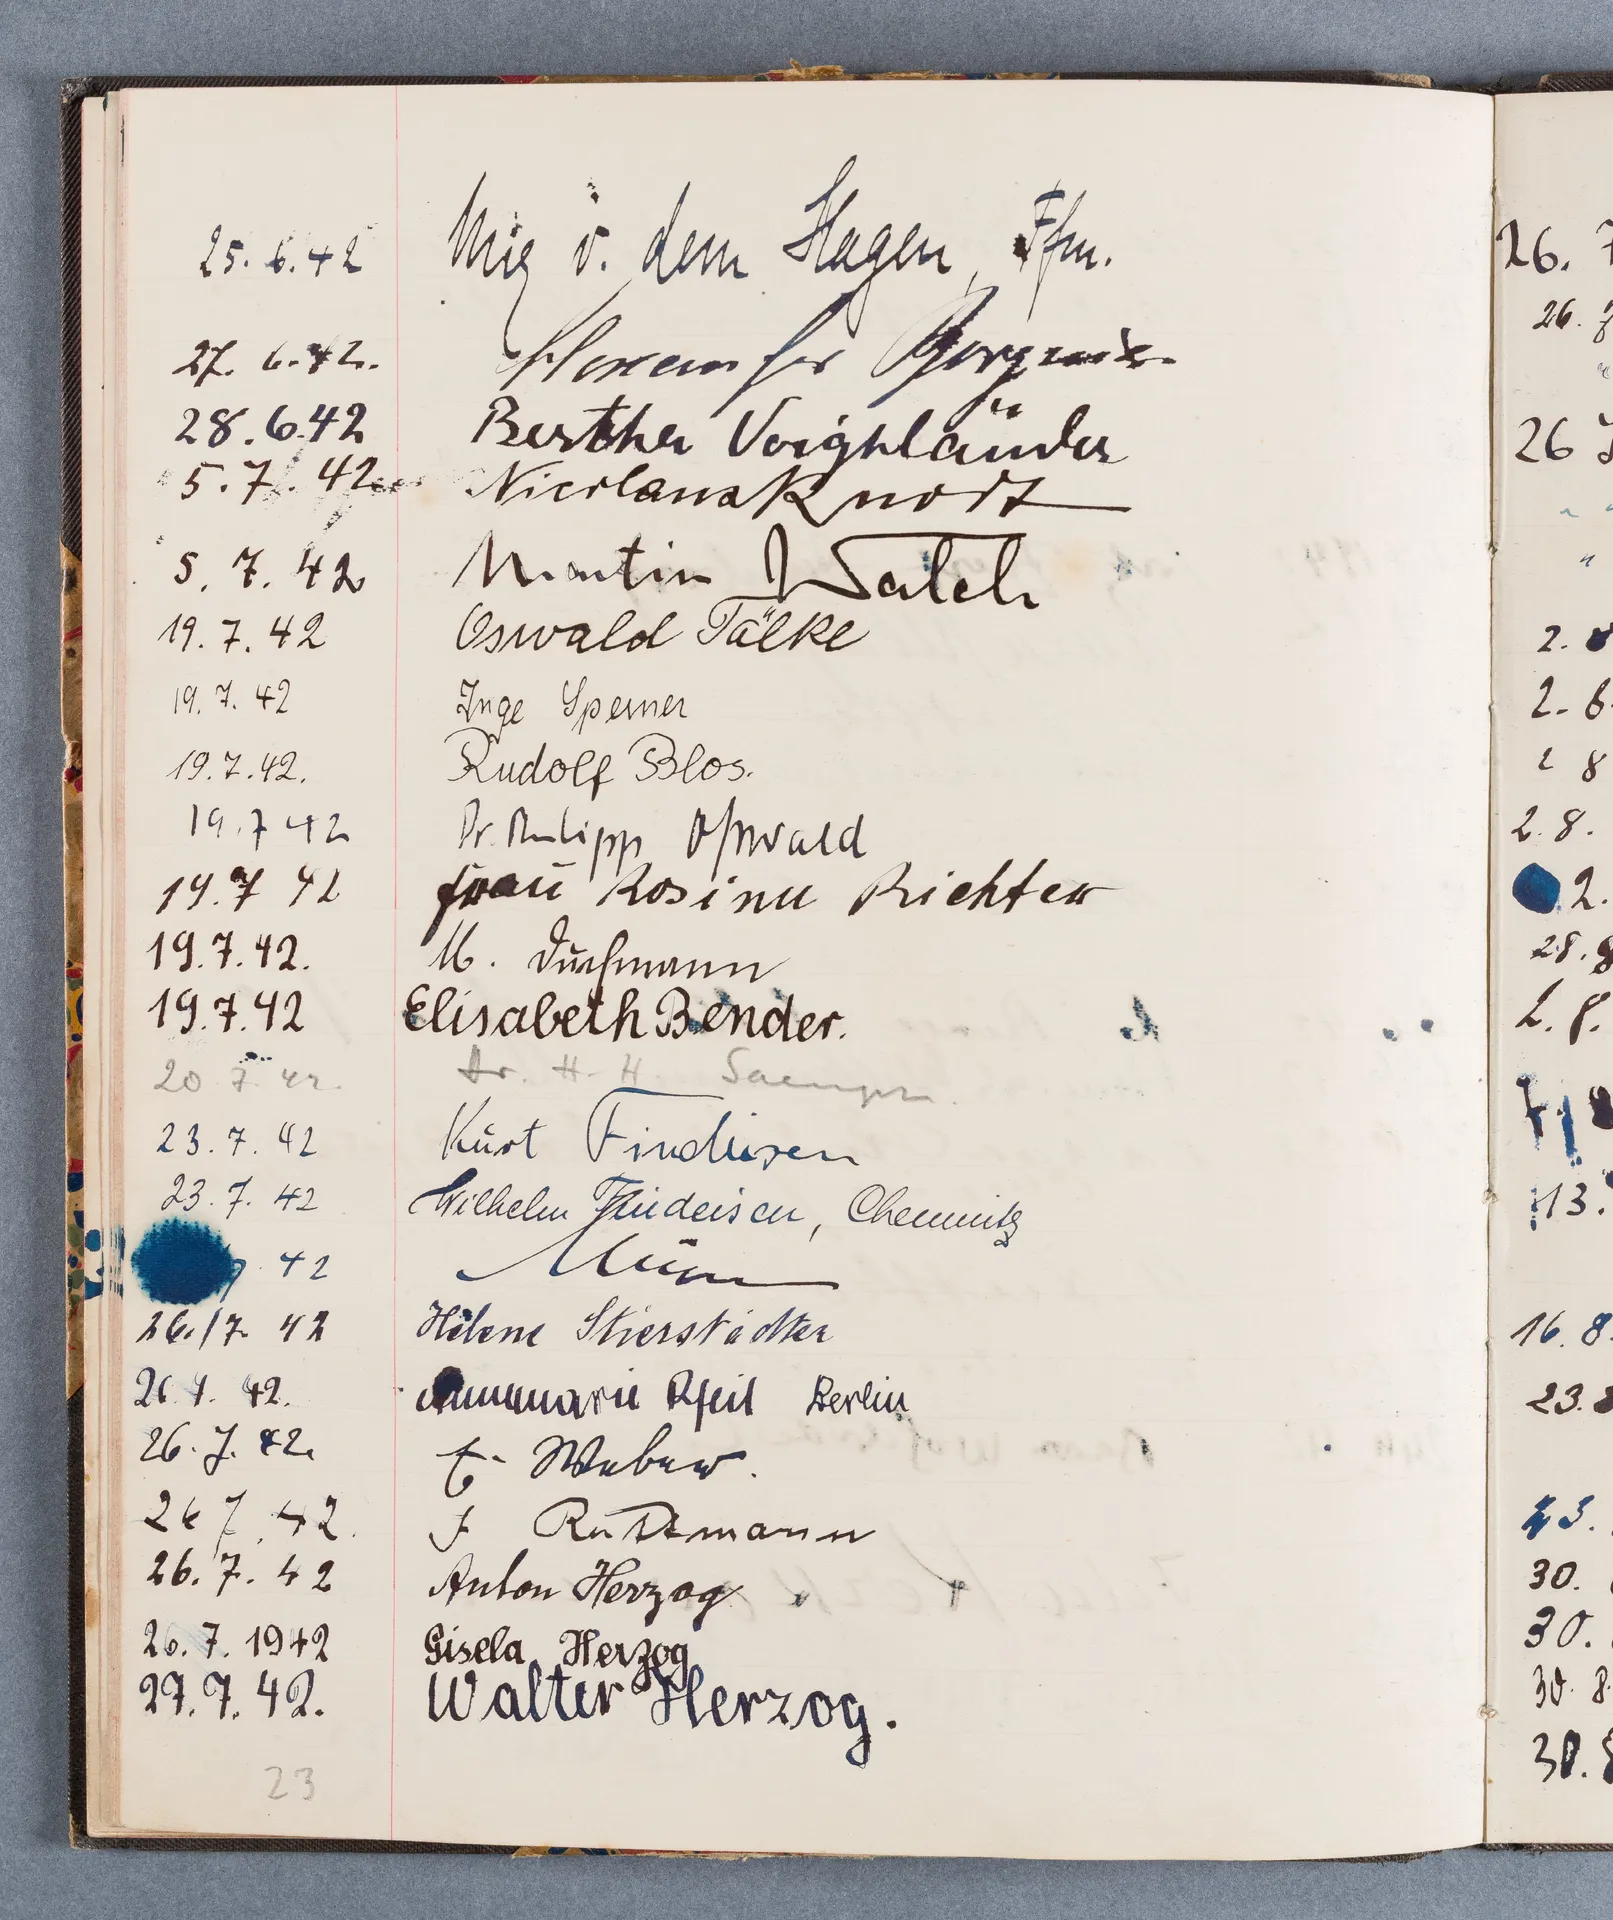 25.6.42 v. dem Hagen, Ffm.
27.6.42.
28.6.42 Bertha Voigtländer
5.7.42 Nicolaus Knort
5.7.42 Martin Walch
19.7.42 Oswald Tälke
19.7.42 Inge Sperner
19.7.42. Rudolf Blos.
19.7 42 Dr. Philipp Oßwald
19.7 42 Frau Rosina Richter
19.7.42. M.
19.7.42 Elisabeth Bender.
20 7 42. Dr. H. H.
23.7.42 Kurt Findeisen
23.7.42 Wilhelm Findeisen, Chemnitz
42
26./7. 42 Helene Stierstädter
26.7. 42. Annemarie Pfeil Berlin
26.7.42. E. Weber.
26 7. 42. Rüdtmann
26.7.42 Anton Herzog
26.7.1942 Gisela Herzog
27.7.42. Walter Herzog.
23
26. 7
26. 7
26 7
"
2. 8
2. 8.
2 8
2. 8.
2.
28. 8
2. 8.
7. 8
13.
16. 8.
23. 8
23.
30.
30.
30. 8.
30. 8